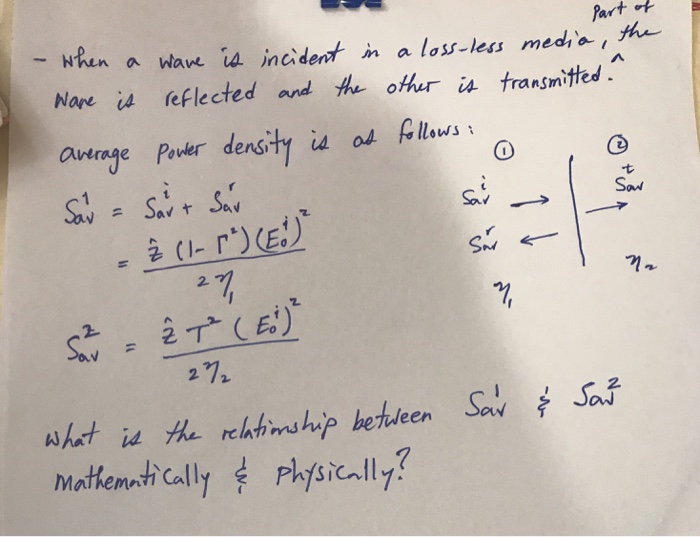 Part of
- When a wave is incident in a loss-less media, ^ the
Wave is reflected and the other is transmitted.
average power density is as follows:
① ②
S_av^1 = S_av^i + S_av^r
S_av^i → S_av^t →
= ẑ (1 - Γ²)(E_o^i)² / 2η₁
S_av^r ←
η₁ η₂
S_av^2 = ẑ T² (E_o^i)² / 2η₂
What is the relationship between S_av^1 & S_av^2
Mathematically & physically?